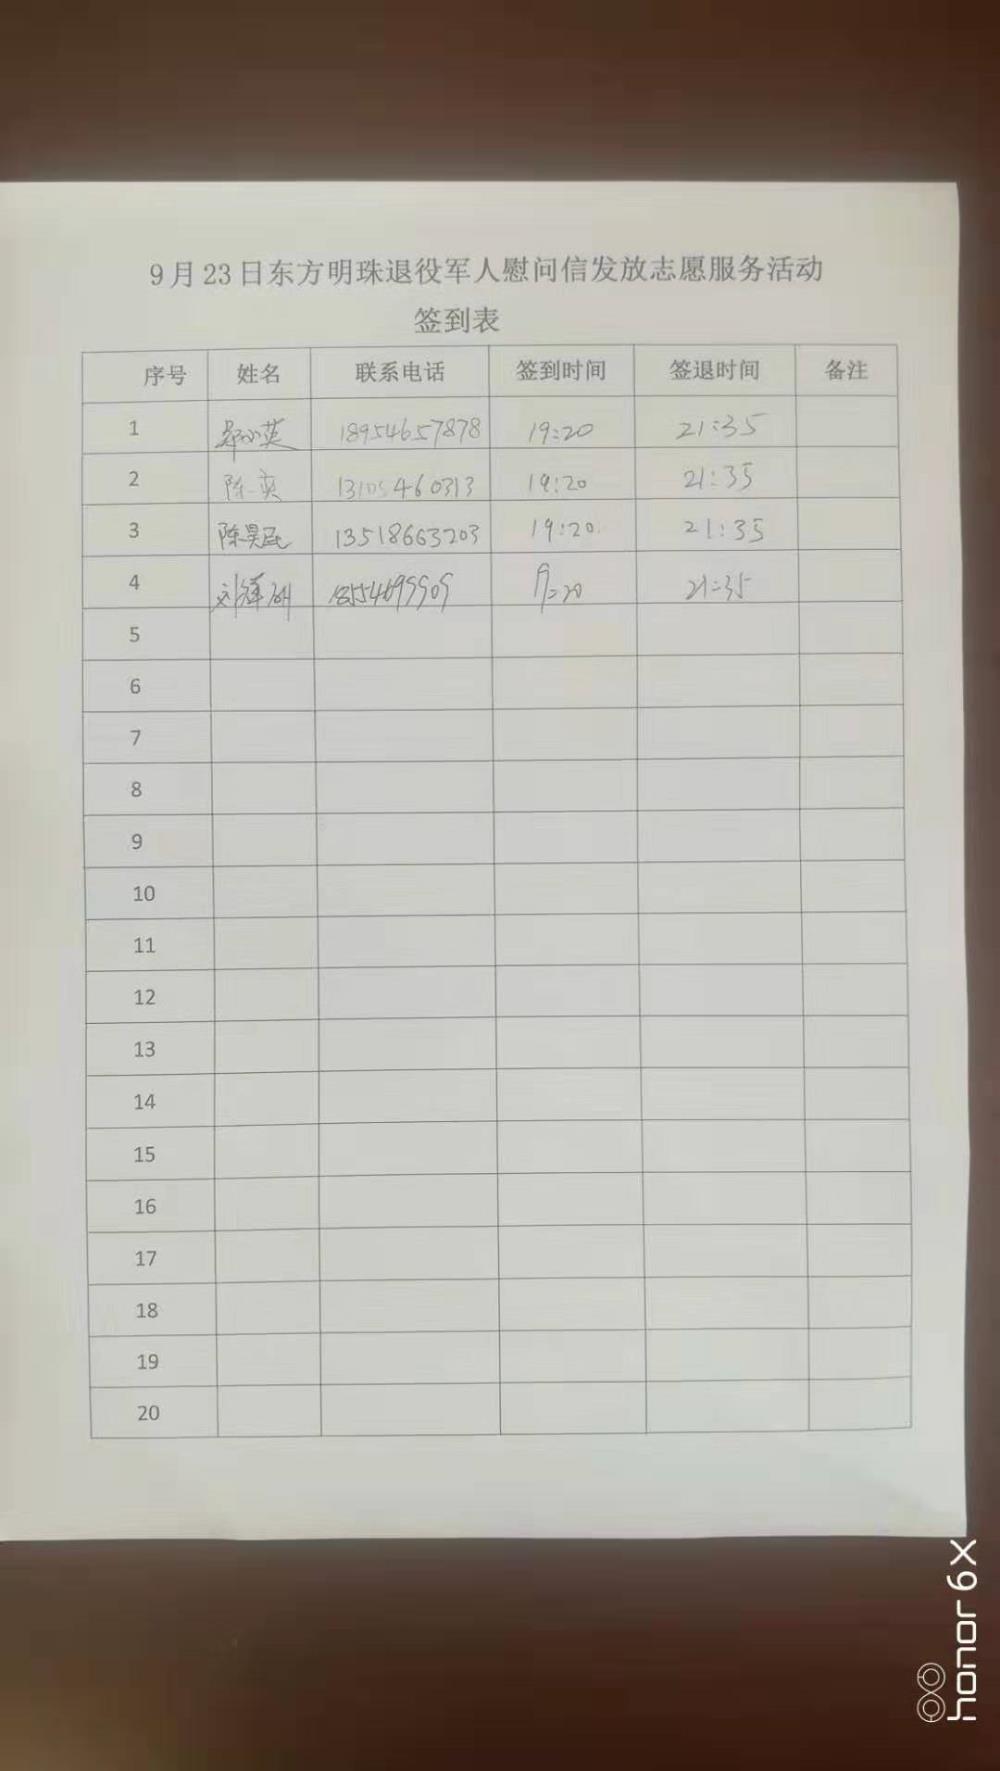 9月23日东方明珠退役军人慰问信发放志愿服务活动
签到表
序号 姓名 联系电话 签到时间 签退时间 备注
1 18954657878 19:20 21:35
2 陈奕 13105460313 19:20 21:35
3 陈昊 13518663203 19:20 21:35
4 21:35
5
6
7
8
9
10
11
12
13
14
15
16
17
18
19
20
honor 6X